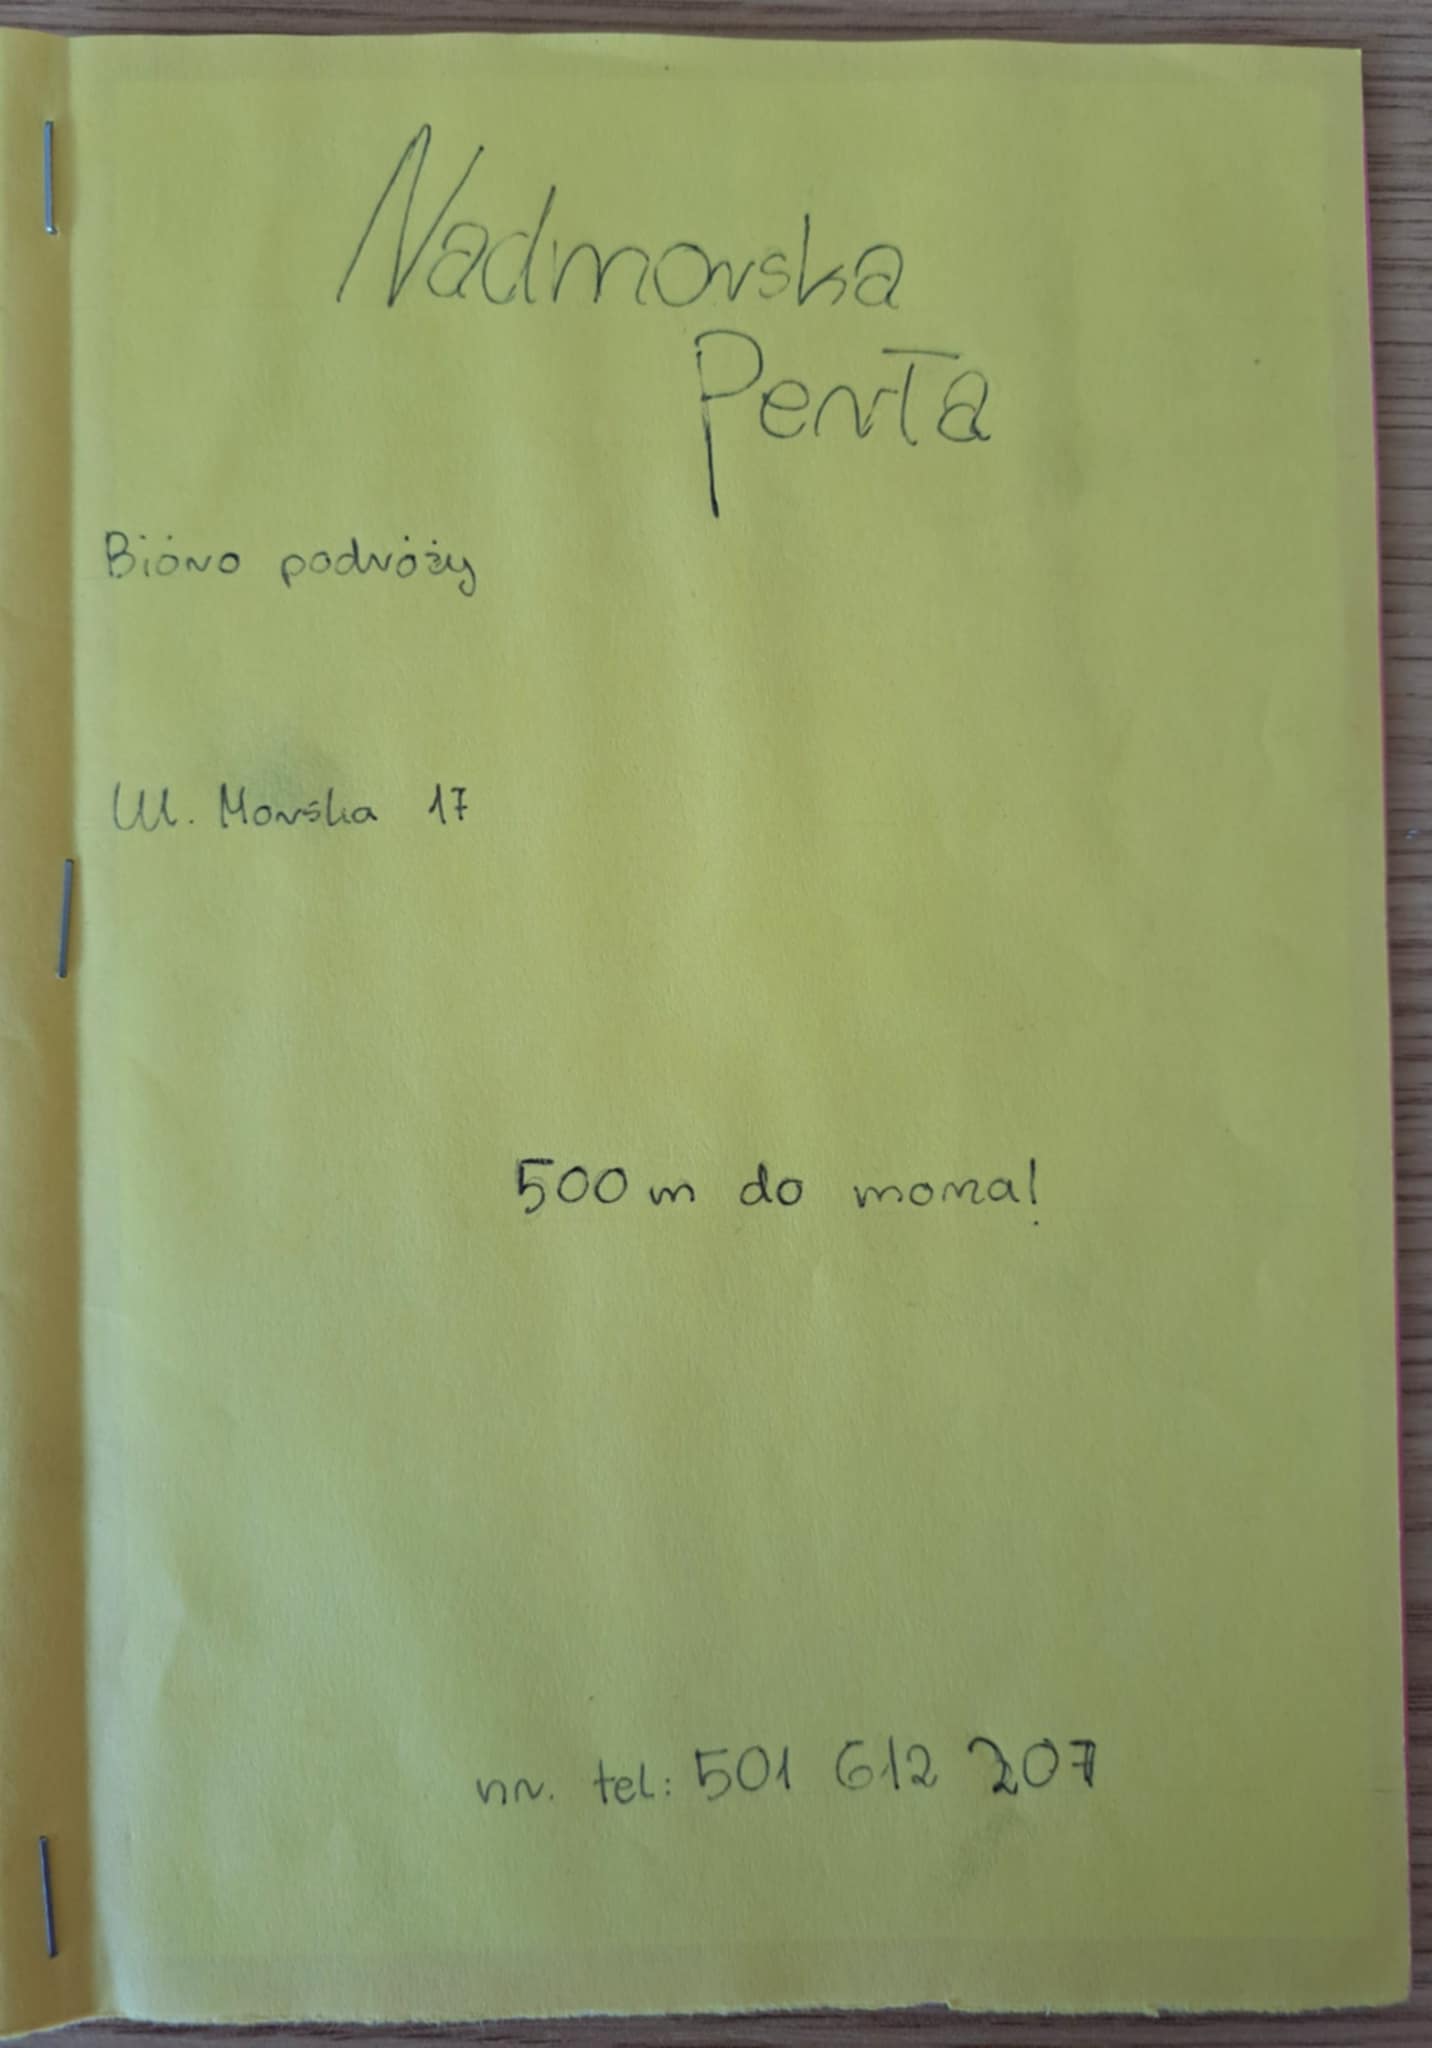 Nadmorska
Perła
Bióro podróży
Ul. Morśka 17
500 m do morza!
nr. tel: 501 612 207